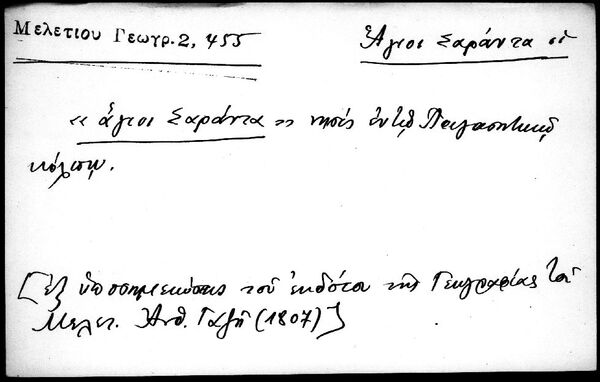 Μελετίου Γεωγρ. 2, 455
Ἅγιοι Σαράντα οἱ
« ἅγιοι Σαράντα » νησὶς ἐν τῷ Παγασητικῷ
κόλπῳ.
[ἐξ ὑποσημειώσεως τοῦ ἐκδότου τῆς Γεωγραφίας τοῦ
Μελετ. Ἀνθ. Γαζῆ (1807)]